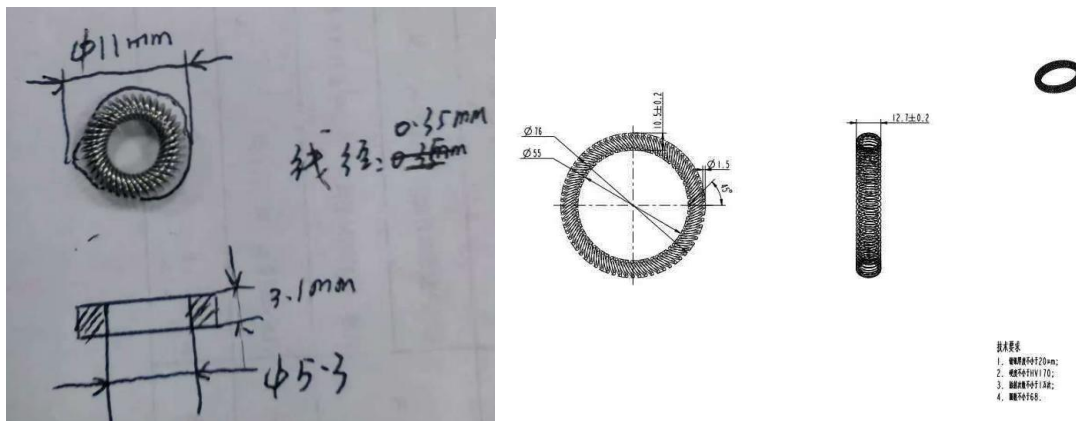 Φ11mm
0.35mm
线径:
3.1mm
Φ5.3
Ø76
Ø55
10.5±0.2
Ø1.5
12.7±0.2
技术要求
1、镀银厚度不小于20um;
2、硬度不小于HV170;
4、圈数不小于68.